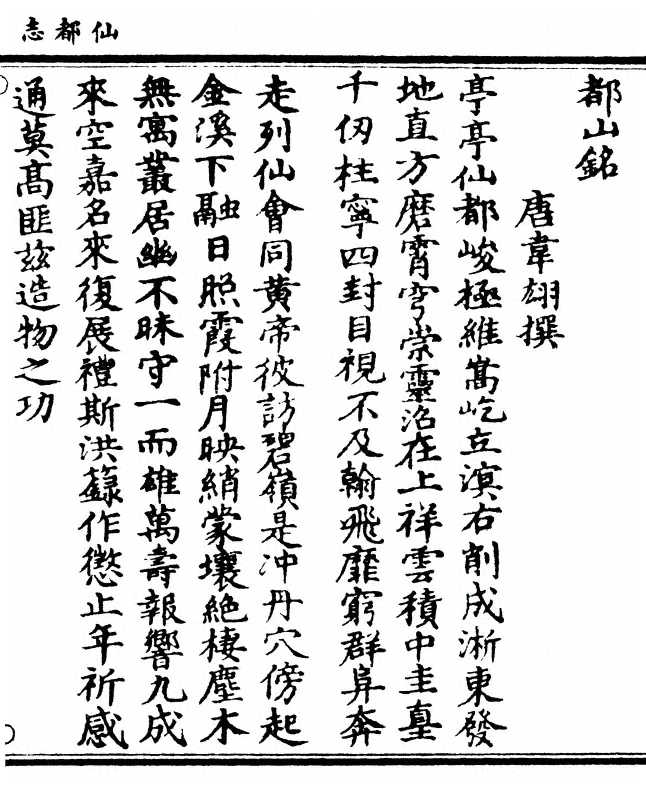 仙都志
都山銘
唐韋翃撰
亭亭仙都峻極維嵩屹立溟右削成淅東發
地直方磨霄穹崇靈沼在上祥雲積中圭畺
千仞柱寧四封目視不及翰飛靡窮群阜奔
走列仙會同黃帝彼訪碧嶺是冲丹穴傍起
金溪下融日照霞附月映綃蒙壤絶棲塵木
無寓叢居幽不昧守一而雄萬壽報響九成
來空嘉名來復展禮斯洪籙作懲止年祈感
通莫髙匪兹造物之功